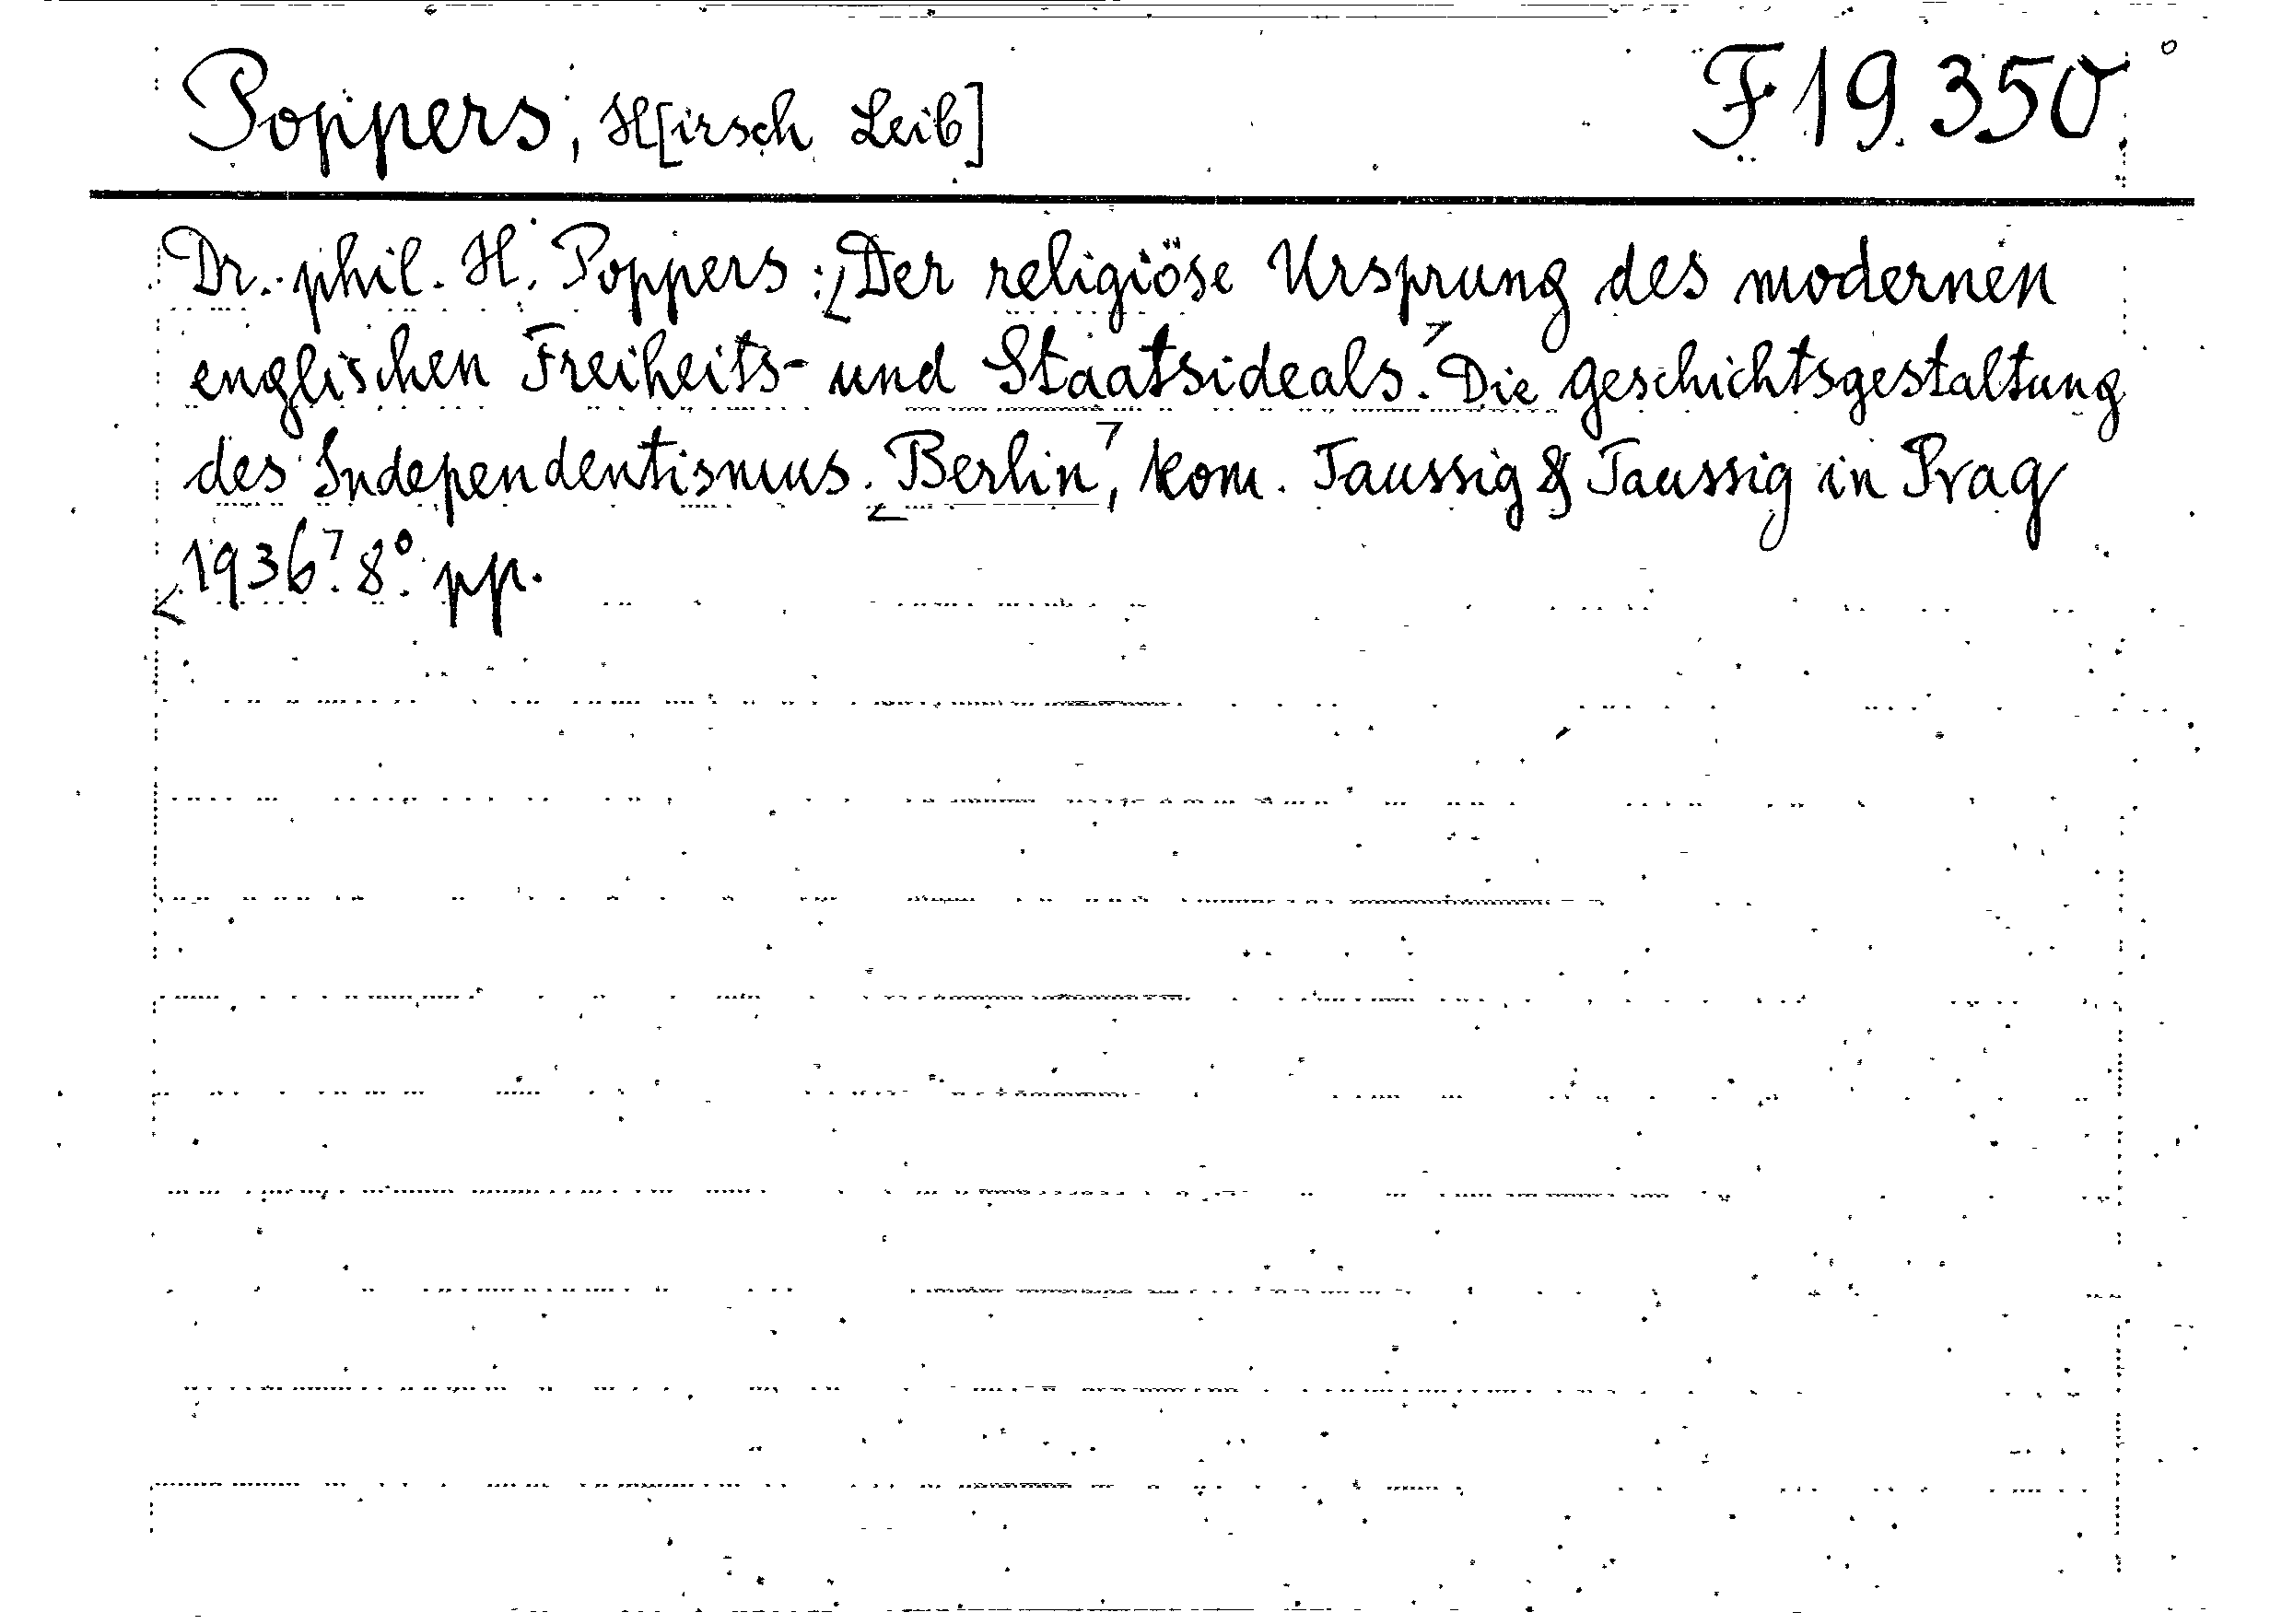 Poppers, H[irsch Leib] F 19.350
Dr. phil. H. Poppers: Der religiöse Ursprung des modernen
englischen Freiheits- und Staatsideals. Die Geschichtsgestaltung
des Independentismus. Berlin, kom. Taussig & Taussig in Prag
1936. 8° pp.